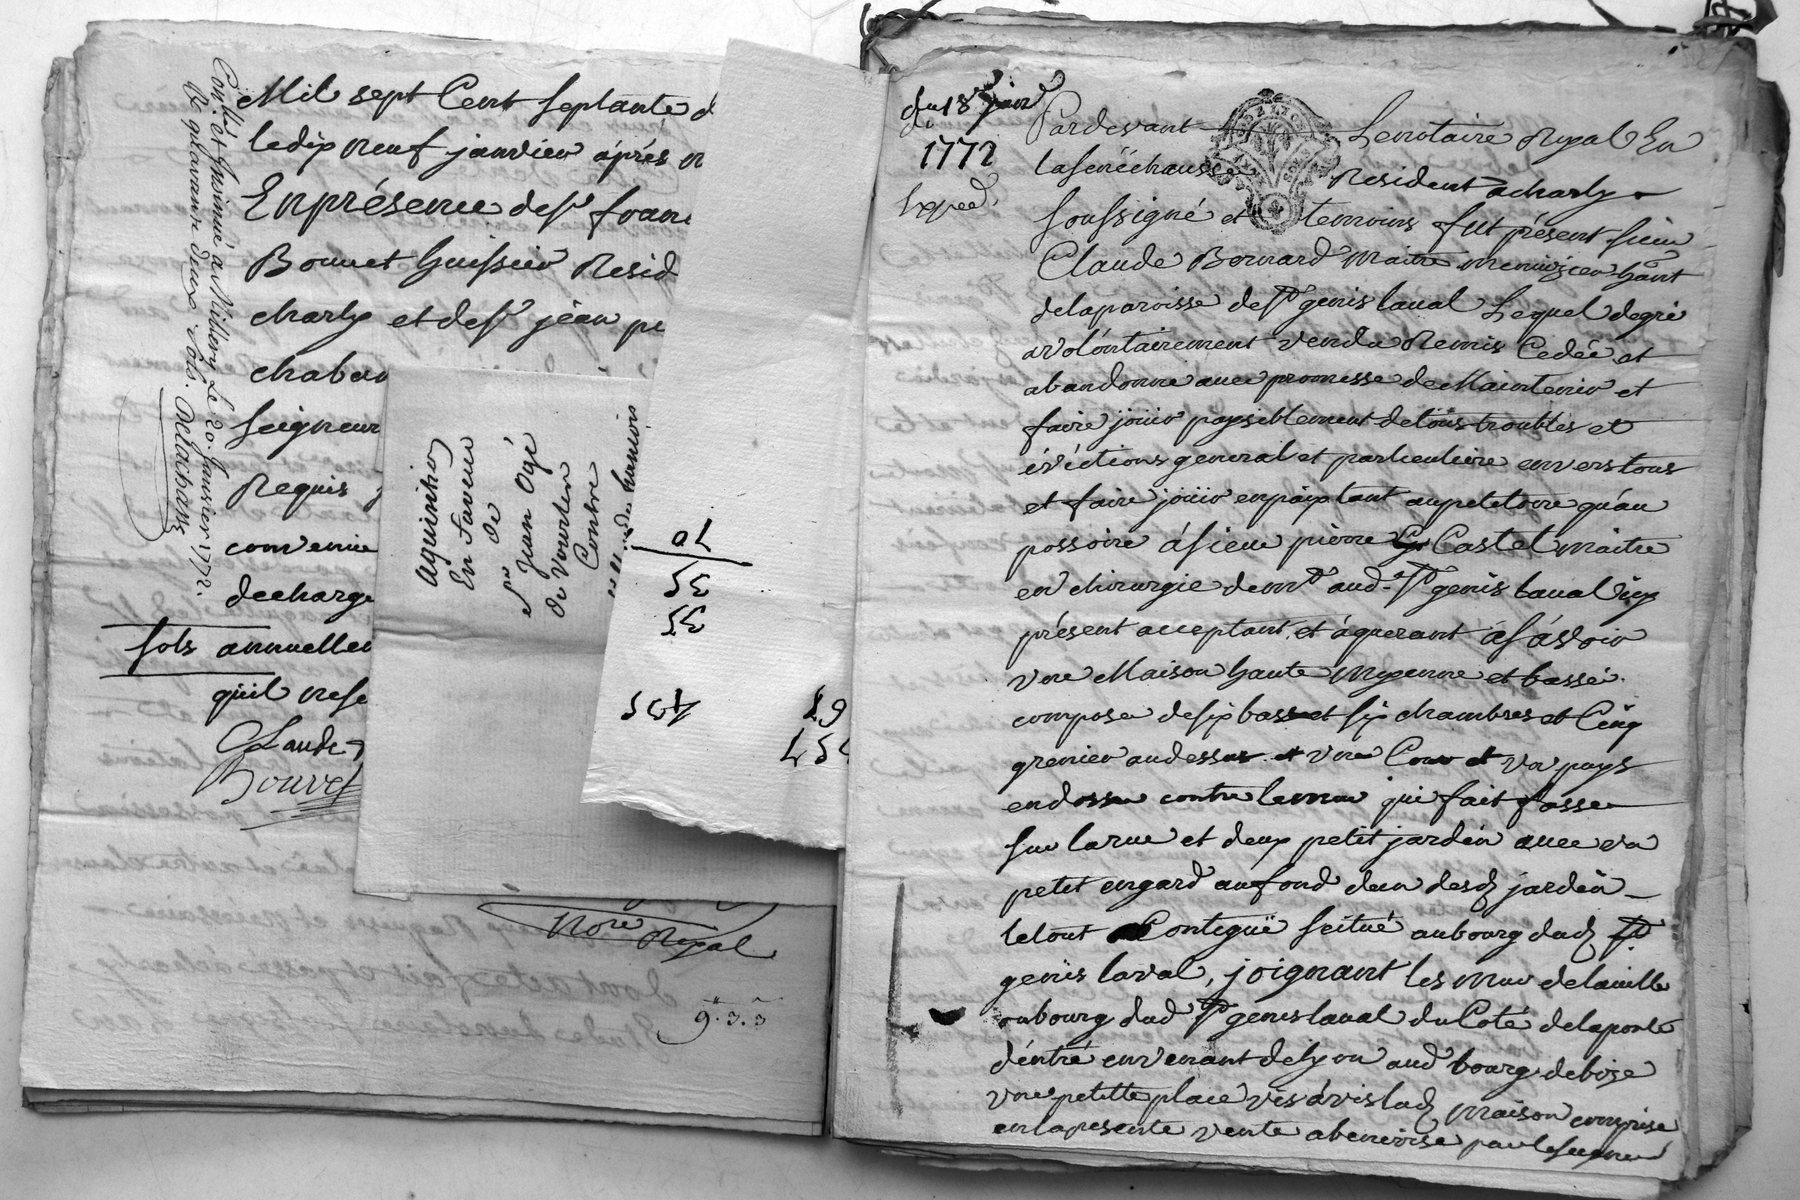 Mil sept Cent septante d
le dix neuf janvier après m
En présence de sr. fran
Bonnet huissier Resid
charly et de sr. jean pi
chabou
seigneur
Requis
convenu
decharge
sols annuelle
qu'il nese
Claude
Bouvet
Conllé et Insinué a Millery le 20. Janvier 1772.
Delachaux
Nore Royal
9.3.3
aquisition
En faveur
de
sr Jean Ogé
de Vourles
Contre
70
35
35
du 18e janvr
1772
Expéd.
Pardevant Le notaire Royal En
la senechaussé Resident a charly
soussigné et temoins fut présent sieur
Claude Bernard maitre menuizier hant
de la paroisse de st genis laval Lequel de gré
a volontairement vendu Remis Cedée et
abandonne avec promesse de Maintenir et
faire jouir paysiblement de tous troubles et
évictions general et particuliere envers tous
et faire jouir en paix tant au petitoire qu'au
possoire à sieur pierre Castel maitre
en chirurgie demt aud. st genis laval icy
présent acceptant et àquerant à sàvoir
une Maison haute moyenne et basse
compose de six bas et six chambres et Cinq
grenier au dessus et une Cour et un puys
endosse contre le mur qui fait fasse
sur la rue et deux petit jardin avec un
petit engard au fond d'un desd jardin
le tout Contegüe scitué au bourg dud st
genis laval, joignant les mur de la ville
oubourg dud st genis laval du Coté de la porte
d'entré en venant de lyon aud bourg de bize
une petitte place vis à vis lad maison comprise
en la presente vente abenevise par le seigneur